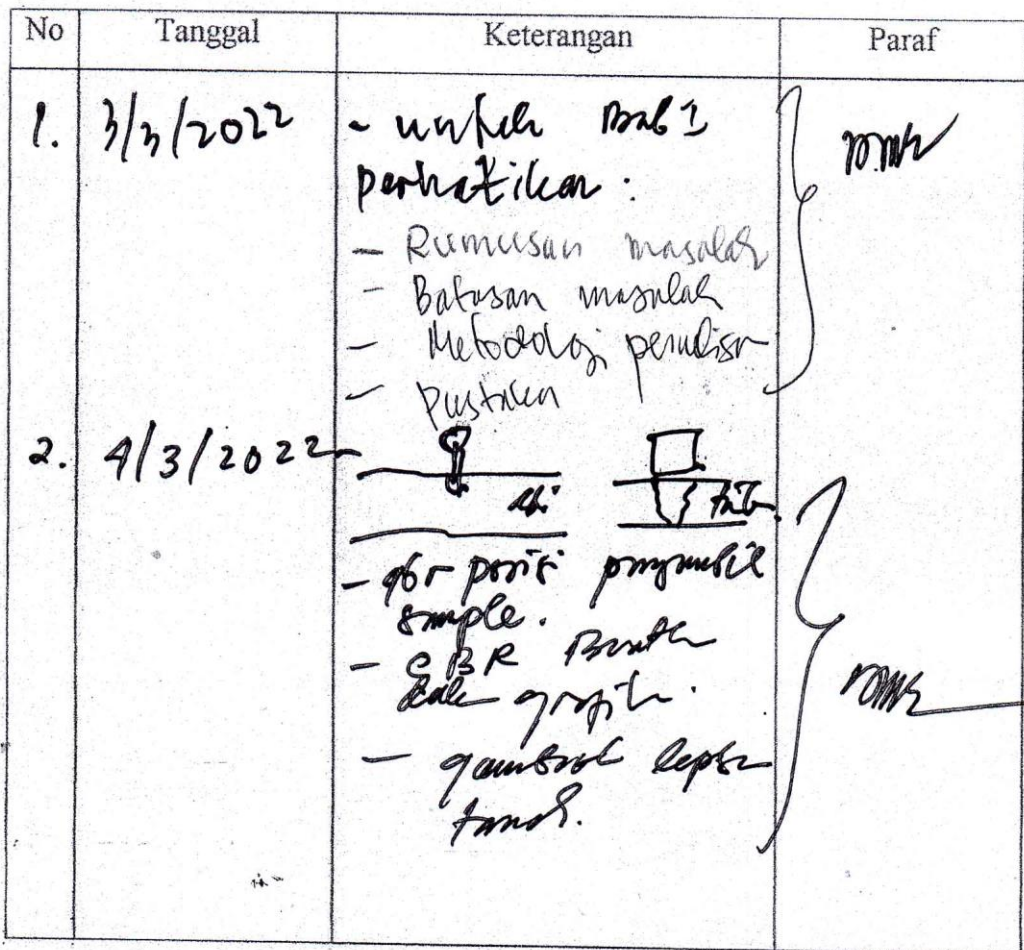 No Tanggal Keterangan Paraf
1. 3/3/2022 - untuk Bab I
perhatikan :
- Rumusan masalah
- Batasan masalah
- Metodologi penulisan
- Pustaka
2. 4/3/2022 -
- gbr posisi pengambil
sample.
- CBR
grafik.
- gambar
tanah.